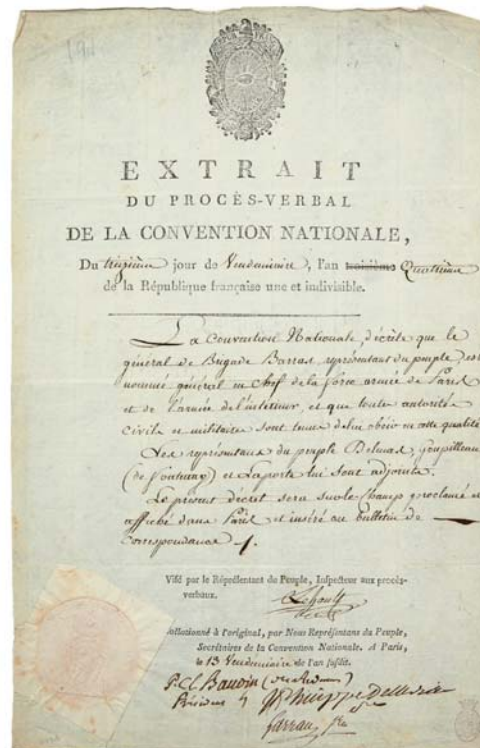 EXTRAIT
DU PROCÈS-VERBAL
DE LA CONVENTION NATIONALE,
Du treizième jour de Vendémiaire, l'an troisième Quatrième
de la République française une et indivisible.
La Convention Nationale, décrète que le
général de Brigade Barras, représentant du peuple, est
nommé général en chef de la force armée de Paris
et de l'armée de l'intérieur, et que toute autorité
civile et militaire sont tenues de lui obéir en cette qualité
Les représentans du peuple Delmas, Goupilleau
(de Fontenay) et Laporte lui sont adjoints.
Le présent décret sera sur le champ proclamé et
affiché dans Paris et inséré au bulletin de
Correspondance
Visé par le Représentant du Peuple, Inspecteur aux procès-
verbaux.
ollationné à l'original, par Nous Représentans du Peuple,
Secrétaires de la Convention Nationale. A Paris,
le 13 Vendémiaire de l'an susdit.
P. C. L. Baudin
Président